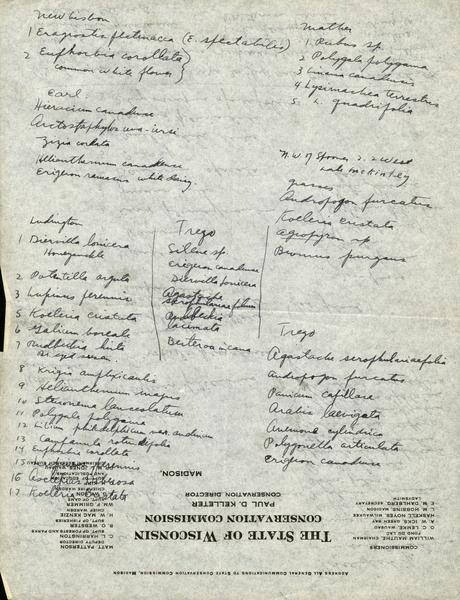 New Lisbon
1 Eragrostis pectinacea (E. spectabilis)
2 Euphorbia corollata
common white flower
Earl
Hieracium canadense
Arctostaphylos uva-ursi
Zizia cordata
Helianthemum canadense
Erigeron ramosus white daisy
Mather
1. Rubus sp.
2 Polygala polygama
3 Linaria canadensis
4 Lysimachia terrestris
5. L. quadrifolia
N.W of Spooner 2. 2 West
Lake McKinley
grasses
Andropogon furcatus
Koeleria cristata
Agropyron sp
Bromus purgans
Ludington
1 Diervilla lonicera
Honeysuckle
2 Potentilla arguta
3 Lupinus perennis
5 Koelleria cristata
6 Galium boreale
7 Rudbeckia hirta
8 Krigia amplexicaulis
9 Helianthemum majus
10 Steironema lanceolatum
11 Polygala polygama
12 Lilium philadelphicum var. andinum
13 Campanula rotundifolia
14 Euphorbia corollata
15 perennis
16 Asclepias
17 Koelleria cristata
Trego
Silene sp.
Erigeron canadense
Diervilla lonicera
Agastache
scrophulariaefolia
Rudbeckia
laciniata
Berteroa incana
Trego
Agastache scrophulariaefolia
Andropogon furcatus
Panicum capillare
Arabis laevigata
Anemone cylindrica
Polygonella articulata
Erigeron canadense
ADDRESS ALL GENERAL COMMUNICATIONS TO STATE CONSERVATION COMMISSION, MADISON
THE STATE OF WISCONSIN
CONSERVATION COMMISSION
PAUL D. KELLETER
CONSERVATION DIRECTOR
MADISON,
COMMISSIONERS
WILLIAM MAUTHE, CHAIRMAN
FOND DU LAC
O. C. LEMKE, WAUSAU
A. W. ICKS, GREEN BAY
HASKELL NOYES, MILWAUKEE
L. M. HOBBINS, MADISON
E. M. DAHLBERG, SECRETARY
LADYSMITH
MATT PATTERSON
DEPUTY DIRECTOR
C. L. HARRINGTON
SUPT. OF FORESTS AND PARKS
B. O. WEBSTER
SUPT. OF FISHERIES
H. W. MAC KENZIE
CHIEF WARDEN
W. F. GRIMMER
SUPT. OF GAME